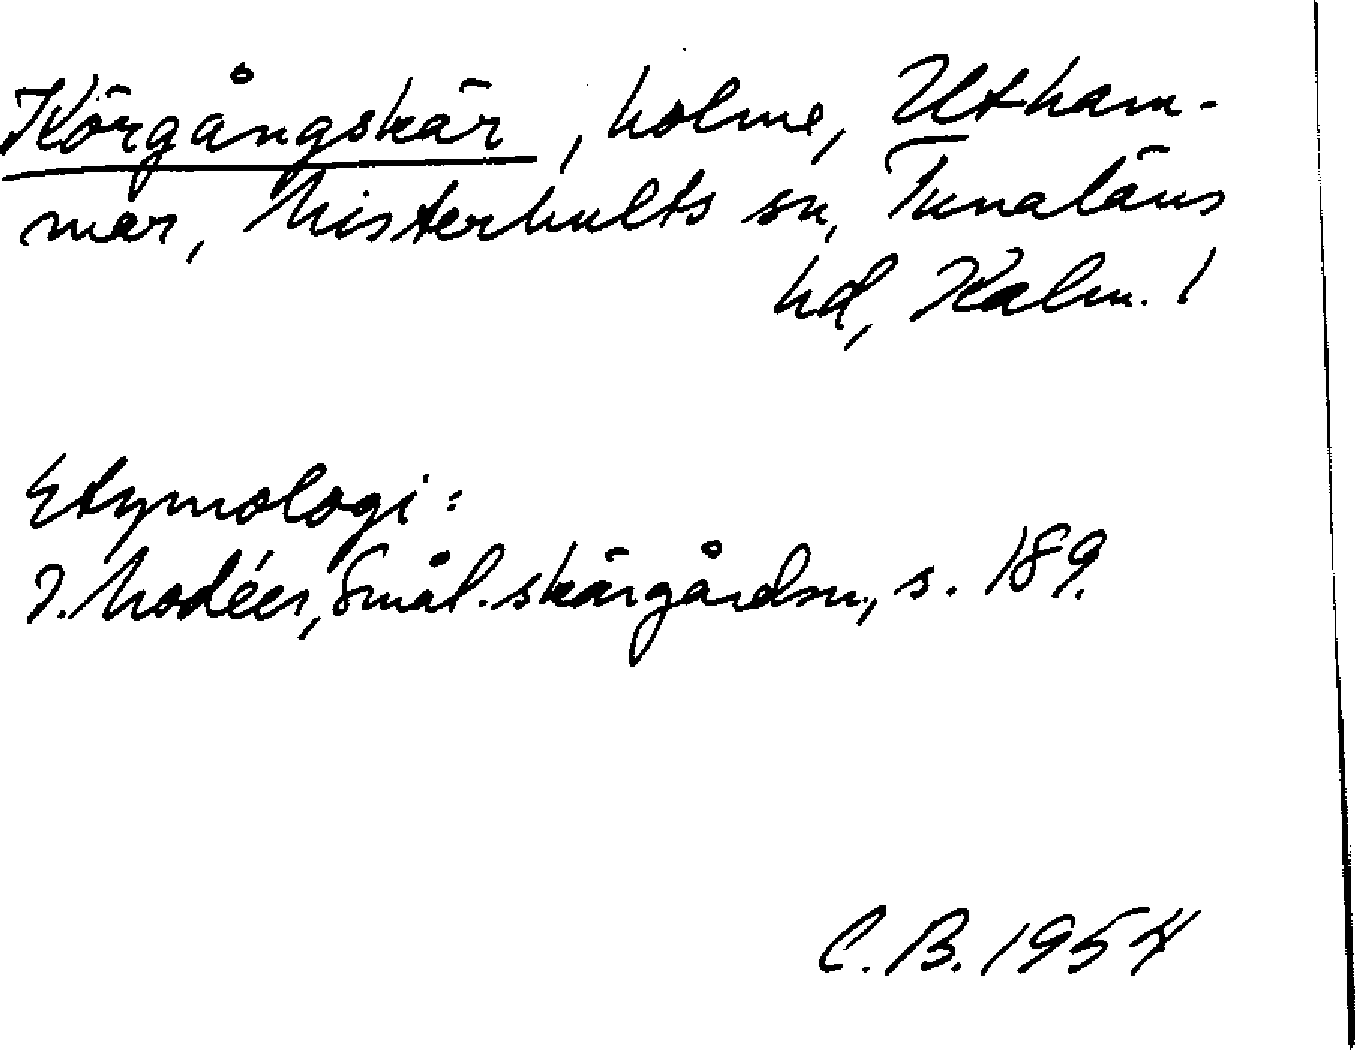 Körgångskär, holme, Utham-
mar, Misterhults sn, Tunaläns
hd, Kalm. l
Etymologi:
I. Modéer, Smål. skärgårdsn., s. 189.
C.B. 1954